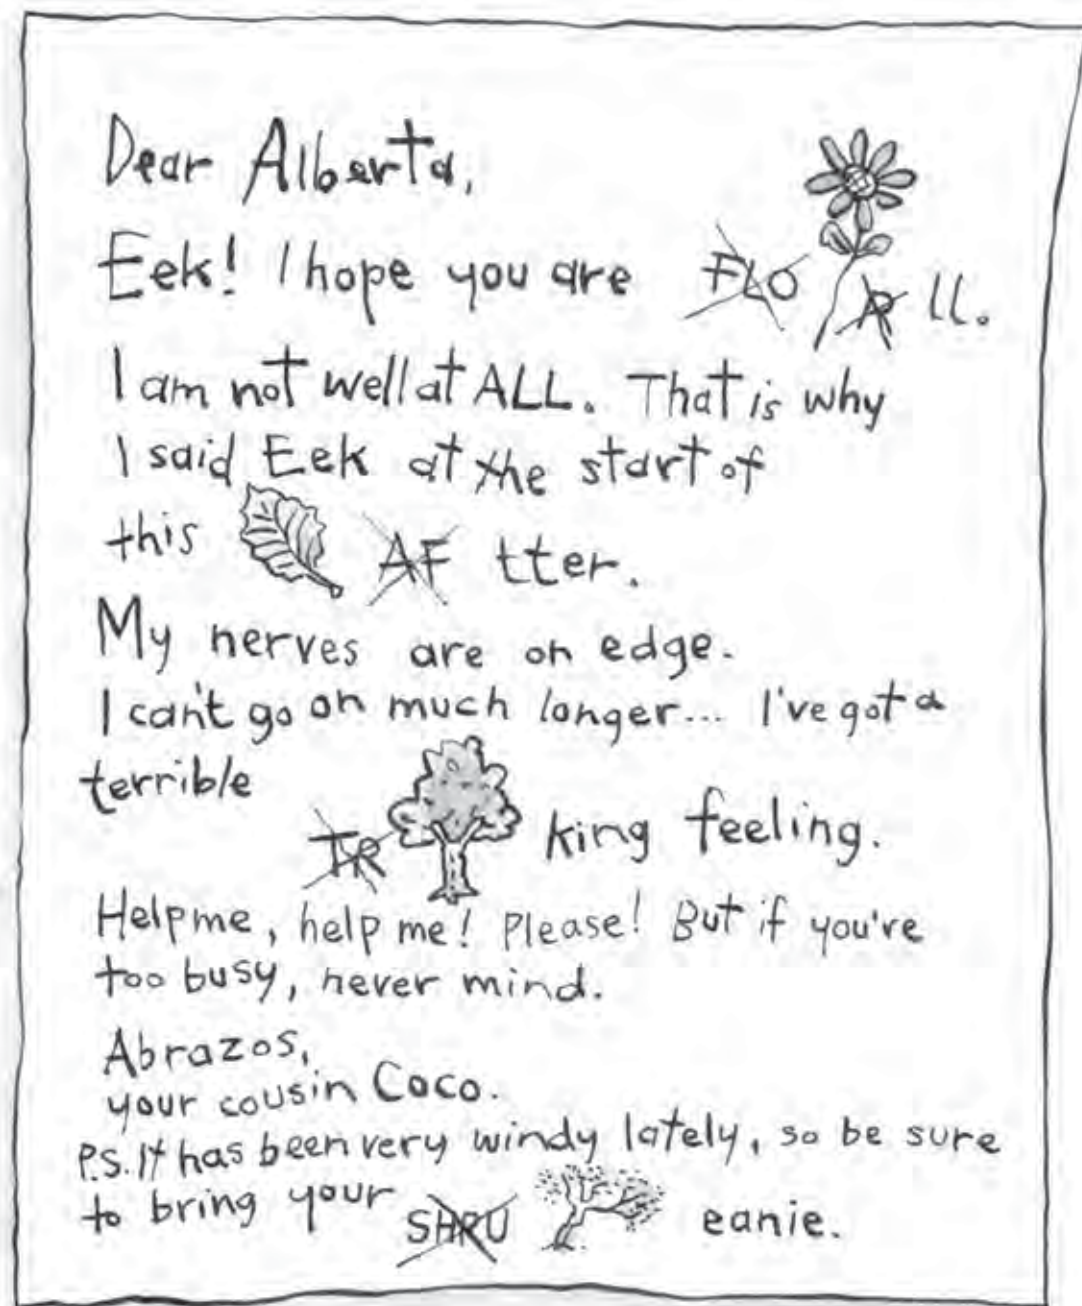 Dear Alberta,
Eek! I hope you are FLO R ll.
I am not well at ALL. That is why
I said Eek at the start of
this AF tter.
My nerves are on edge.
I can't go on much longer... I've got a
terrible
TR king feeling.
Help me, help me! Please! But if you're
too busy, never mind.
Abrazos,
your cousin Coco.
P.S. It has been very windy lately, so be sure
to bring your SHRU eanie.